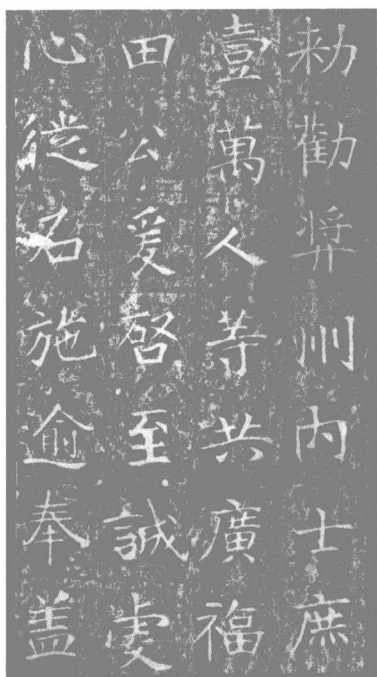 勅勸弉州内士庶
壹萬人等共廣福
田公爰啓至誠虔
心從名施逾奉盖